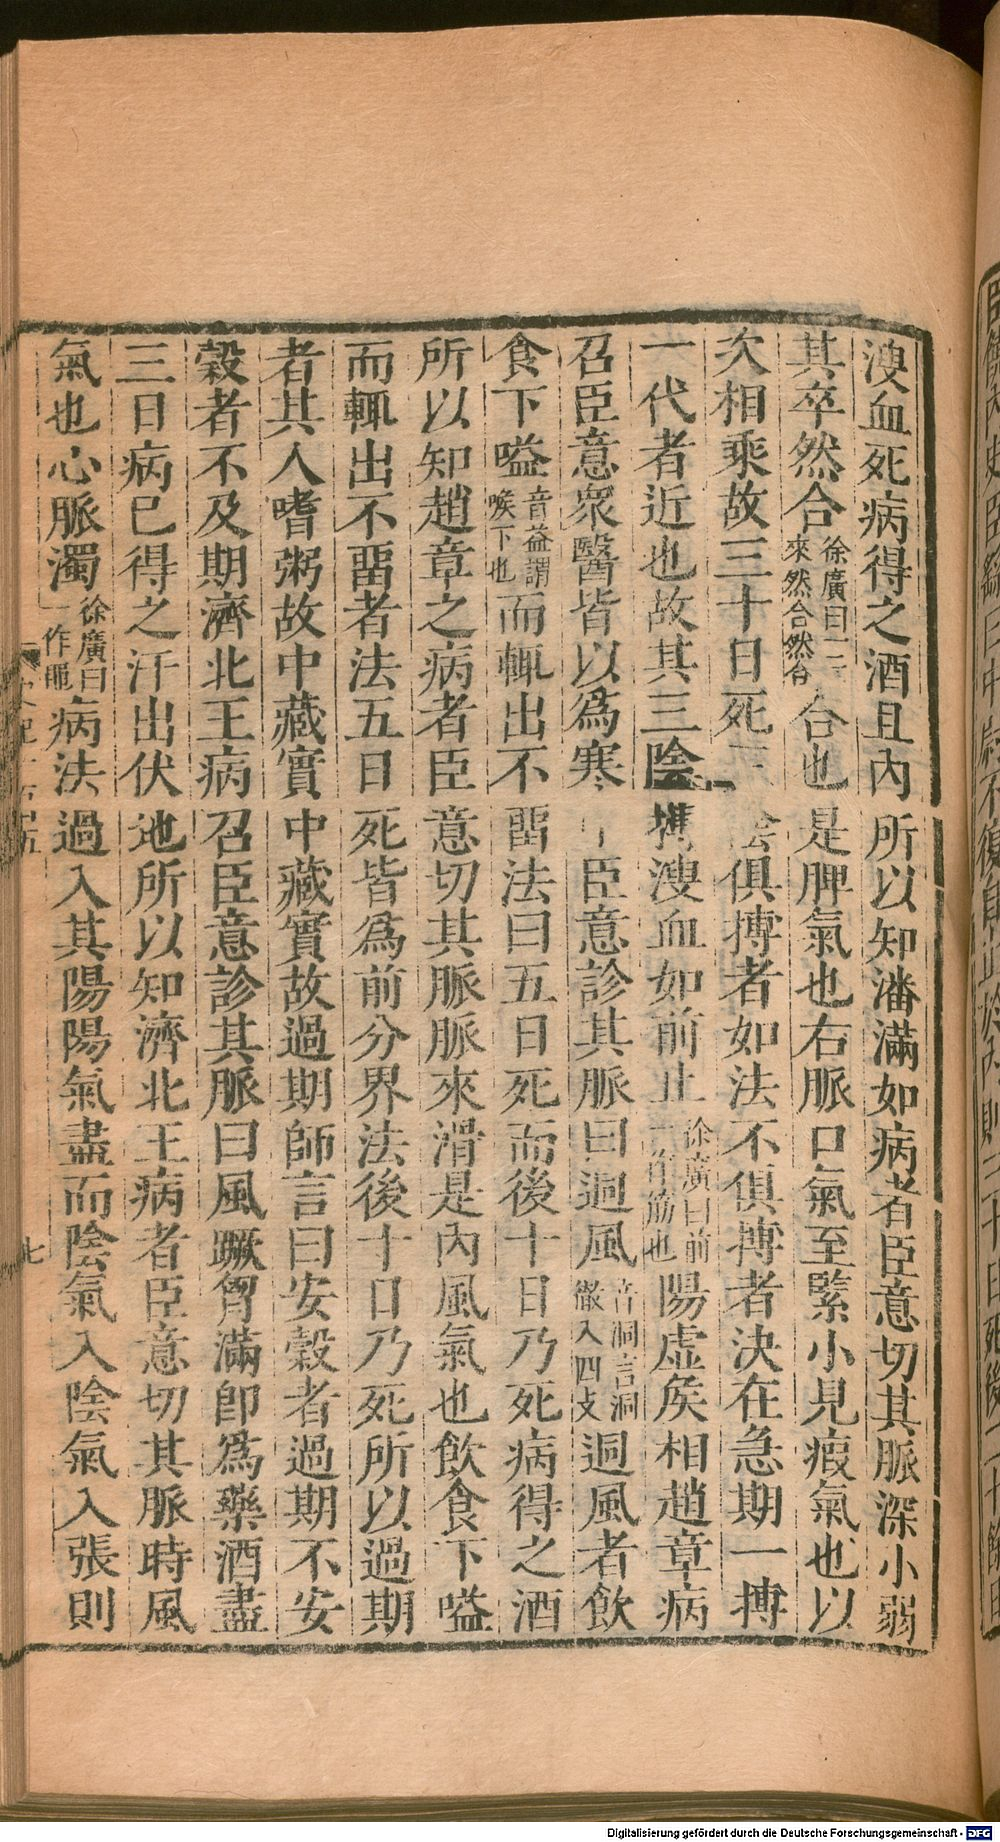 溲血死病得之酒且內所以知潘滿如病者臣意切其脈深小弱
其卒然合徐廣曰一云來然合然合合也是脾氣也右脈口氣至緊小見瘕氣也以
次相乘故三十日死三陰俱搏者如法不俱搏者決在急期一搏
一代者近也故其三陰搏溲血如前止徐廣曰前一作筋也陽虛矦相趙章病
召臣意衆醫皆以爲寒中臣意診其脈曰迵風音洞言洞徹入四支迵風者飲
食下嗌音益謂喉下也而輒出不畱法曰五日死而後十日乃死病得之酒
所以知趙章之病者臣意切其脈脈來滑是內風氣也飲食下嗌
而輒出不畱者法五日死皆爲前分界法後十日乃死所以過期
者其人嗜粥故中藏實中藏實故過期師言曰安穀者過期不安
穀者不及期濟北王病召臣意診其脈曰風蹶胷滿卽爲藥酒盡
三日病已得之汗出伏地所以知濟北王病者臣意切其脈時風
氣也心脈濁徐廣曰一作黽病法過入其陽陽氣盡而陰氣入陰氣入張則
七
Digitalisierung gefördert durch die Deutsche Forschungsgemeinschaft - DFG